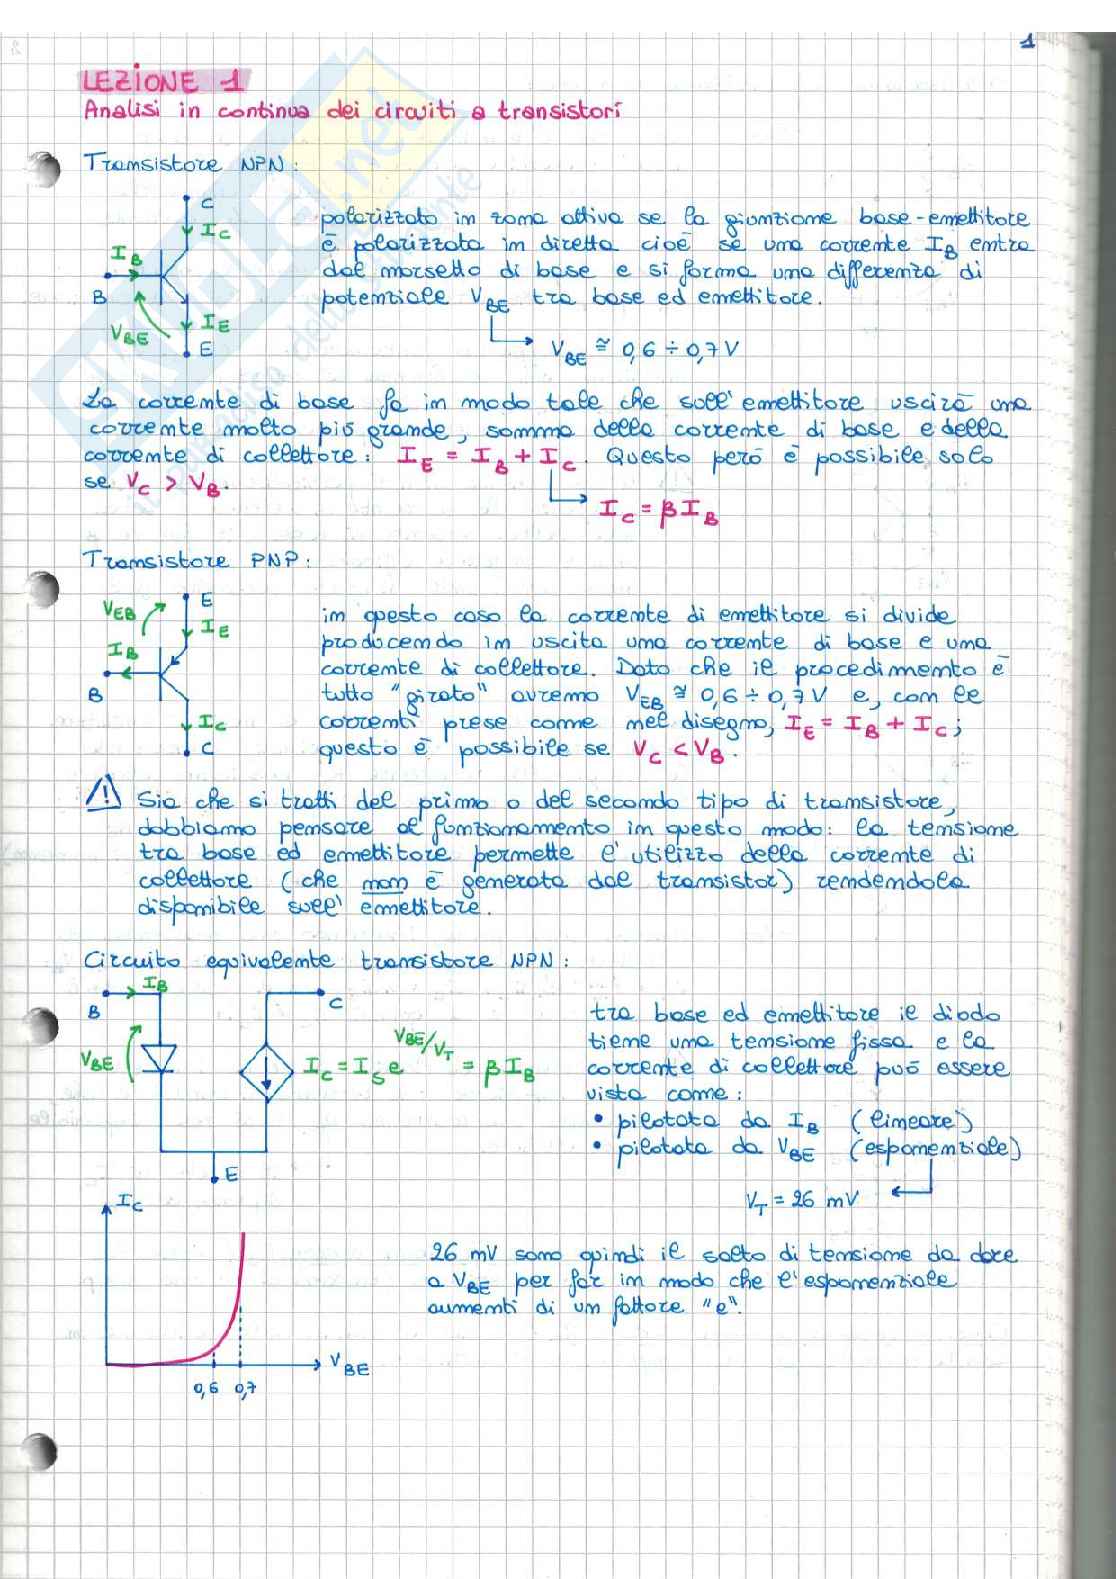 1
LEZIONE 1
Analisi in continua dei circuiti a transistori
Transistore NPN:
C
I_C
I_B
B
V_BE
I_E
E
polarizzato in zona attiva se la giunzione base-emettitore
è polarizzata in diretta cioè se una corrente I_B entra
dal morsetto di base e si forma una differenza di
potenziale V_BE tra base ed emettitore.
V_BE ≅ 0,6 ÷ 0,7 V
La corrente di base fa in modo tale che sull'emettitore uscirà una
corrente molto più grande, somma della corrente di base e della
corrente di collettore: I_E = I_B + I_C. Questo però è possibile solo
se V_C > V_B.
I_C = β I_B
Transistore PNP:
V_EB
E
I_E
I_B
B
I_C
C
in questo caso la corrente di emettitore si divide
producendo in uscita una corrente di base e una
corrente di collettore. Dato che il procedimento è
tutto "girato" avremo V_EB ≅ 0,6 ÷ 0,7 V e, con le
correnti prese come nel disegno, I_E = I_B + I_C;
questo è possibile se V_C < V_B.
! Sia che si tratti del primo o del secondo tipo di transistore,
dobbiamo pensare al funzionamento in questo modo: la tensione
tra base ed emettitore permette l'utilizzo della corrente di
collettore (che non è generata dal transistor) rendendola
disponibile sull'emettitore.
Circuito equivalente transistore NPN:
I_B
B
C
V_BE
I_C = I_S e^{V_BE/V_T} = β I_B
E
tra base ed emettitore il diodo
tiene una tensione fissa e la
corrente di collettore può essere
vista come:
• pilotata da I_B (lineare)
• pilotata da V_BE (esponenziale)
V_T = 26 mV
I_C
V_BE
0,6 0,7
26 mV sono quindi il salto di tensione da dare
a V_BE per far in modo che l'esponenziale
aumenti di un fattore "e".